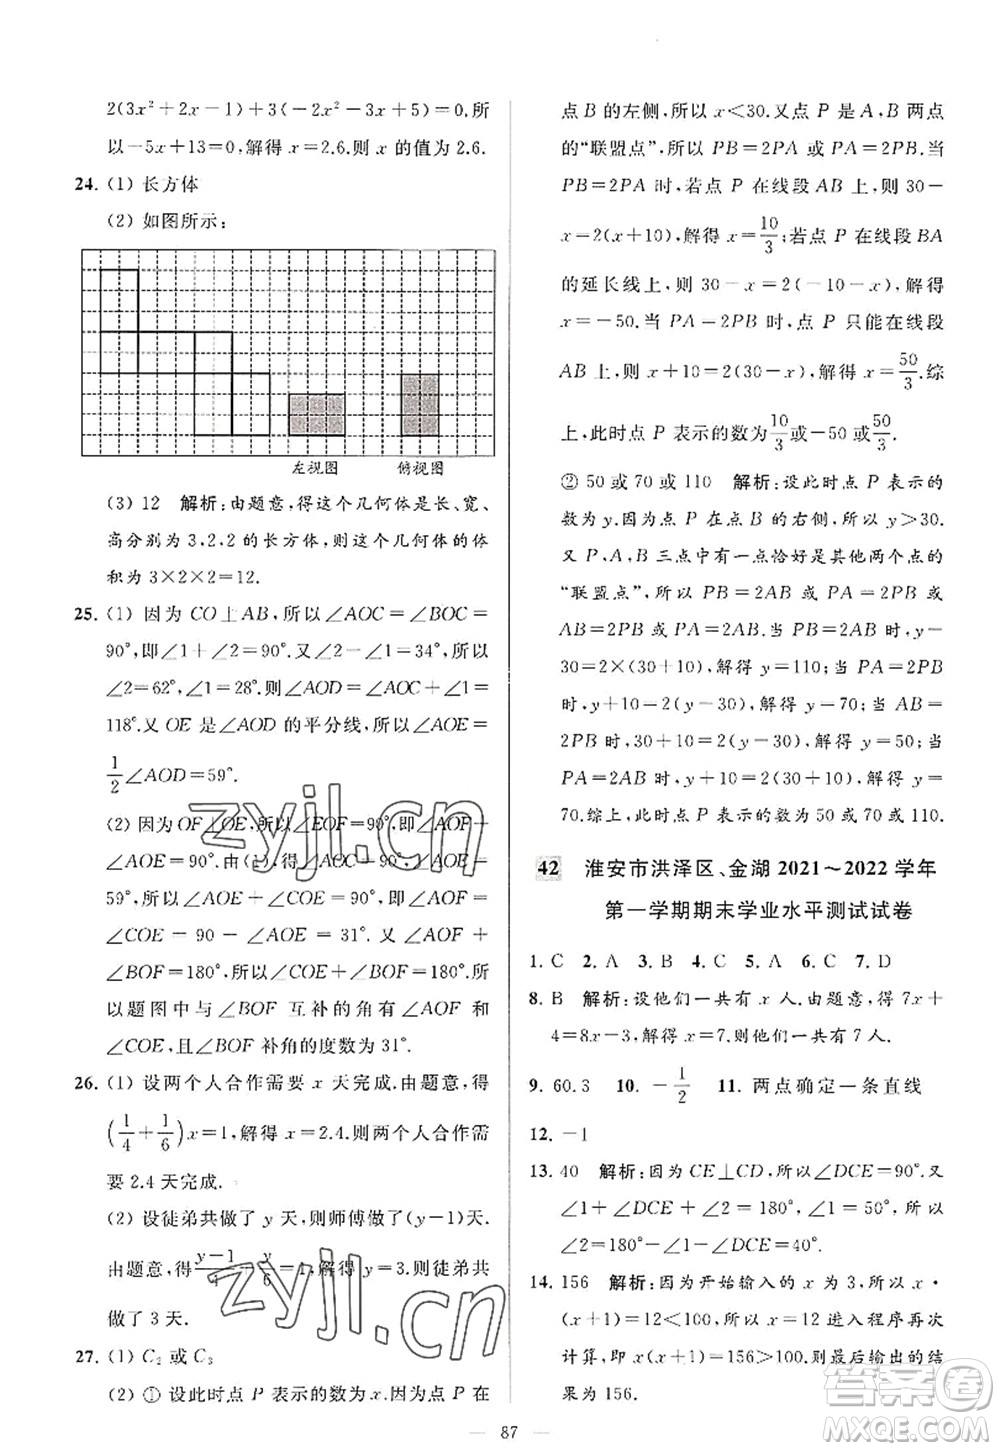 2(3x²+2x−1)+3(−2x²−3x+5)=0,所
以−5x+13=0,解得 x=2.6.所以 x 的值为 2.6.
24. (1) 长方体
(2) 如图所示:
左视图 俯视图
(3) 12 解析:由题意,得这个几何体是长、宽、
高分别为 3、2、2 的长方体,则这个几何体的体
积为 3×2×2=12.
25. (1) 因为 CO⊥AB,所以∠AOC=∠BOC=
90°,即∠1+∠2=90°.又∠2−∠1=34°,所以
∠2=62°,∠1=28°.则∠AOD=∠AOC+∠1=
118°.又 OE 是∠AOD 的平分线,所以∠AOE=
1/2∠AOD=59°.
(2) 因为 OF⊥OE,所以∠EOF=90°,即∠AOF+
∠AOE=90°.由(1),得∠AOE=59°,所以
∠AOF=90°−∠AOE=31°.又∠AOE=59°,
∠COE=90−∠AOE=31°.又∠AOF+
∠BOF=180°,所以∠COE+∠BOF=180°.所
以题图中与∠BOF 互补的角有∠AOF 和
∠COE,且∠BOF 补角的度数为 31°.
26. (1) 设两个人合作需要 x 天完成.由题意,得
(1/4+1/6)x=1,解得 x=2.4.所以两个人合作需
要 2.4 天完成.
(2) 设徒弟共做了 y 天,则师傅做了(y−1)天.
由题意,得(y−1)/4+y/6=1,解得 y=3.则徒弟共
做了 3 天.
27. (1) C₂ 或 C₃
(2) ① 设此时点 P 表示的数为 x.因为点 P 在
点 B 的左侧,所以 x<30.又点 P 是 A,B 两点
的“联盟点”,所以 PB=2PA 或 PA=2PB.当
PB=2PA 时,若点 P 在线段 AB 上,则 30−
x=2(x+10),解得 x=10/3;若点 P 在线段 BA
的延长线上,则 30−x=2(−10−x),解得
x=−50.当 PA=2PB 时,点 P 只能在线段
AB 上,则 x+10=2(30−x),解得 x=50/3.综
上,此时点 P 表示的数为10/3或−50 或50/3.
② 50 或 70 或 110 解析:设此时点 P 表示的
数为 y.因为点 P 在点 B 的右侧,所以 y>30.
又 P、A、B 三点中有一点恰好是其他两个点的
“联盟点”,所以当 PA=2AB 时,y+10=2×
(30+10),解得 y=70;当 PB=2AB 时,y−
30=2×(30+10),解得 y=110;当 PA=2PB
时,y+10=2(y−30),解得 y=70;当 AB=2PB
时,30+10=2(y−30),解得 y=50;当
PA=2AB 时,y+10=2(30+10),解得 y=
70.综上所述,此时点 P 表示的数为 50 或 70 或 110.
42 淮安市洪泽区、金湖 2021～2022 学年
第一学期期末学业水平测试试卷
1. C 2. A 3. B 4. C 5. A 6. C 7. D
8. B 解析:设他们一共有 x 人.由题意,得 7x+
4=8x−3,解得 x=7.则他们一共有 7 人.
9. 60.3 10. −1/2 11. 两点确定一条直线
12. −1
13. 40 解析:因为 CE⊥CD,所以∠DCE=90°.又
∠1+∠DCE+∠2=180°,∠1=50°,所以
∠2=180°−∠1−∠DCE=40°.
14. 156 解析:因为开始输入的 x 为 3,所以 x·
(x+1)=12<100.所以 x=12 进入程序再次
计算,即 x(x+1)=156>100,则最后输出的结
果为 156.
87
zyjl.cn
zyjl.cn
答案圈
MXQE.COM